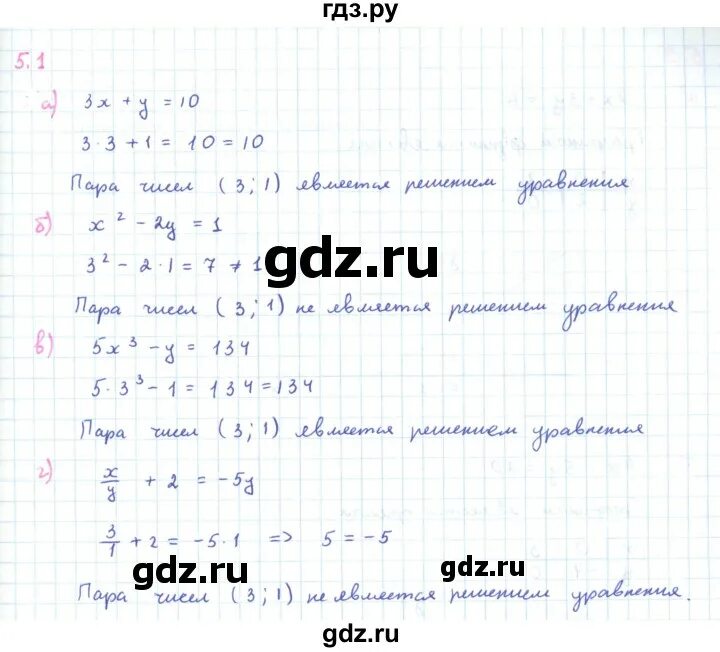 гдз.ру
5.1
а) 3x + y = 10
3·3 + 1 = 10 = 10
Пара чисел (3; 1) является решением уравнения
б) x² - 2y = 1
gdz.ru
3² - 2·1 = 7 ≠ 1
Пара чисел (3; 1) не является решением уравнения
в) 5x³ - y = 134
5·3³ - 1 = 134 = 134
Пара чисел (3; 1) является решением уравнения
г) x/y + 2 = -5y
3/1 + 2 = -5·1 => 5 = -5
gdz.ru gdz.ru
Пара чисел (3; 1) не является решением уравнения.
gdz.ru